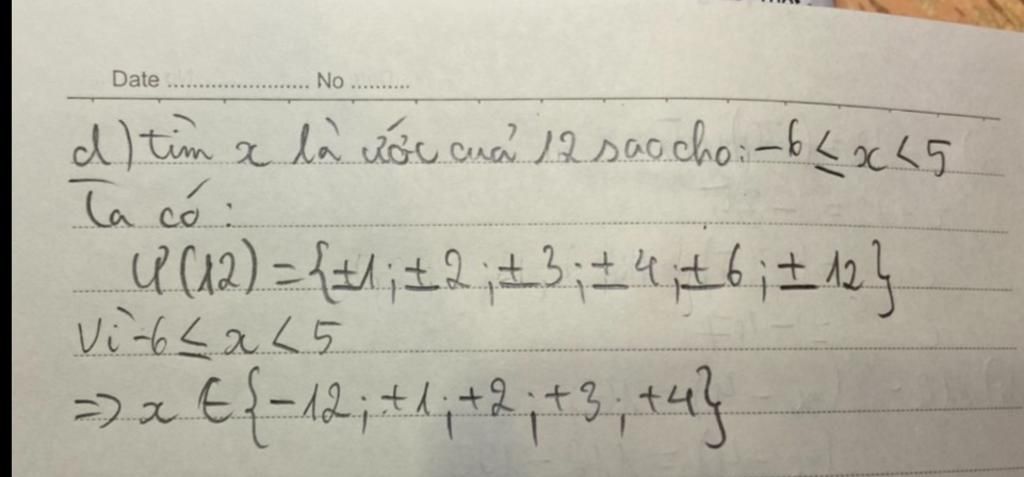 Date ........................ No ..........
d) tìm x là ước của 12 sao cho: -6 ≤ x < 5
Ta có:
Ư(12) = {±1; ±2; ±3; ±4; ±6; ±12}
Vì -6 ≤ x < 5
=> x ∈ {-12; +1; +2; +3; +4}